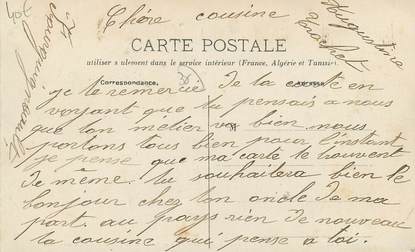 40€
Chère cousine
CARTE POSTALE
utiliser seulement dans le service intérieur (France, Algérie et Tunisie).
Correspondance,
je te remercie de la carte en
voyant que tu pensais a nous
que ton métier va bien nous
portons tous bien pour l'instant
je pense que ma carte te trouvent
de même tu souhaitera bien le
bonjour chez ton oncle de ma
part au pays rien de nouveau
la cousine qui pense a toi.
Augustine